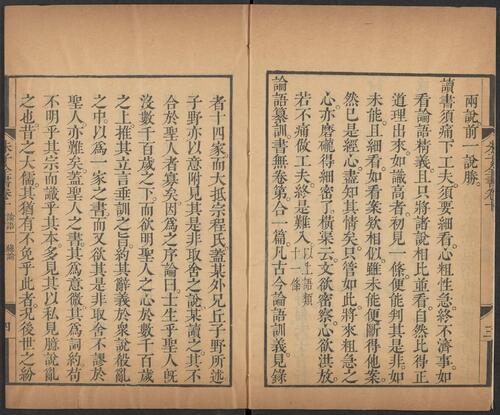 兩說前一說勝。
讀書須痛下工夫。須要細看。心粗性急。終不濟事。如
看論語精義。且只將諸說相比並看。自然比得正
道理出來。如識高者。初見一條。便能判其是非。如
未能。且細看。如看案款相似。雖未能便斷得他案。
然已是經心盡知其情矣。只管如此。將來粗急之
心。亦磨礲得細密了。橫渠云。文欲密察。心欲洪放。
若不痛做工夫。終是難入。以上語類十一條
論語纂訓書無卷第。合一篇。凡古今論語訓義見錄
三
者十四家。而大抵宗程氏。蓋某外兄丘子野所述。
子野亦以意附見其是非取舍之說。某讀之。其不
合於聖人者寡矣。因爲之序論曰。士生乎聖人既
沒數千百歲之下。而欲明聖人之心於數千百歲
之上。推其立言垂訓之旨。約其辭義於衆說殽亂
之中。以爲一家之書。而又欲其是非取舍不謬於
聖人。亦難矣。蓋聖人之書。其爲意微。其爲詞約。苟
不明乎其宗。而識乎其本。多見其以私見臆說亂
之也。昔之大儒。其猶有不免乎此者。况後世之紛
四